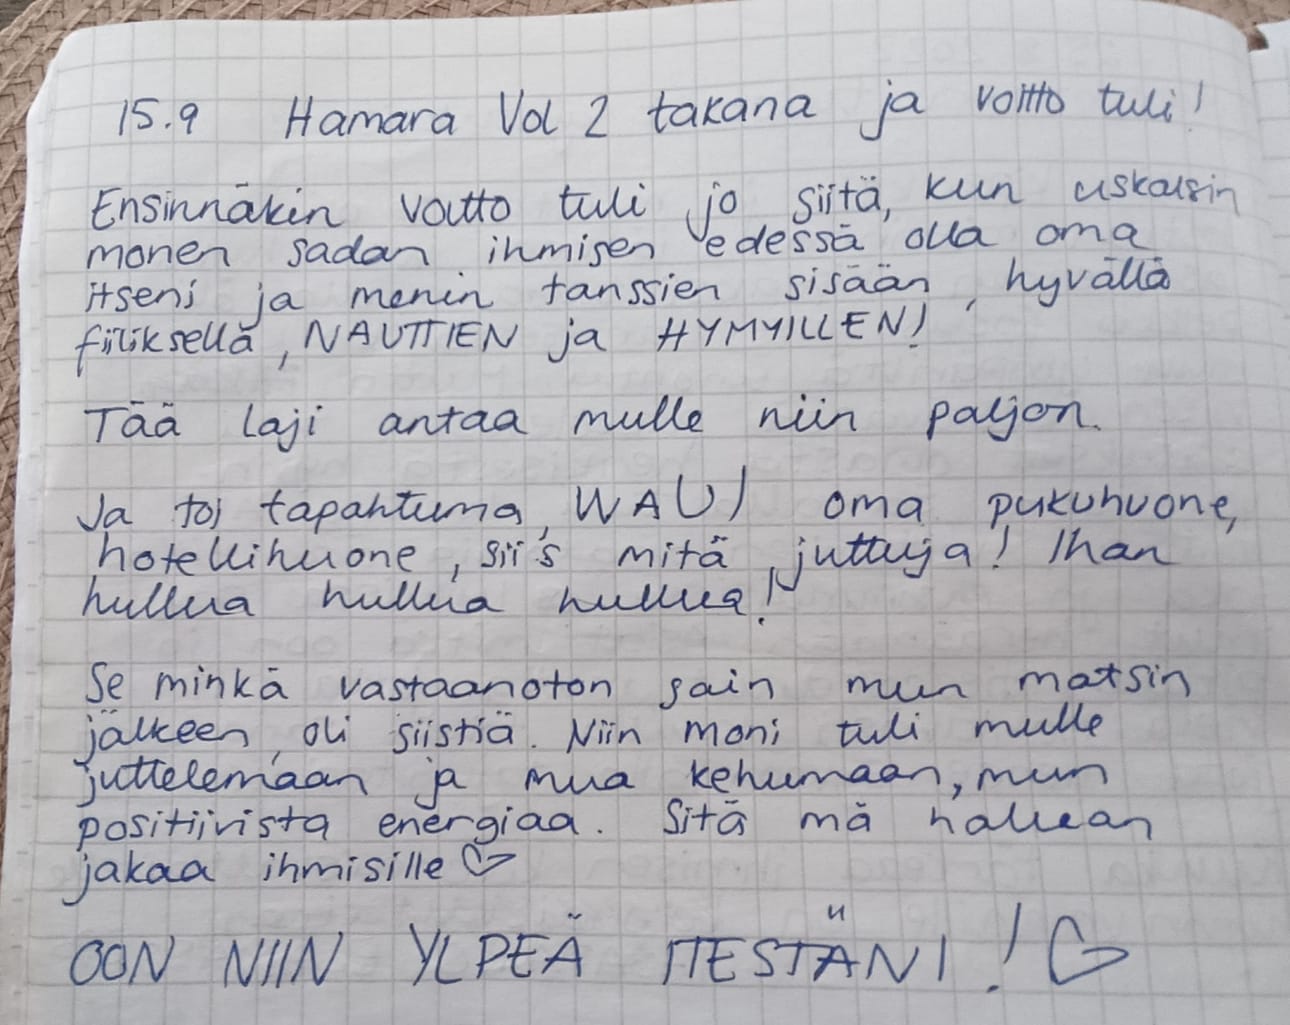 15.9 Hamara Vol 2 takana ja voitto tuli!
Ensinnäkin voitto tuli jo siitä, kun uskalsin
monen sadan ihmisen edessä olla oma
itseni ja menin tanssien sisään, hyvällä
fiiliksellä, NAUTTIEN ja HYMYILLEN!
Tää laji antaa mulle niin paljon.
Ja toi tapahtuma, WAU! oma pukuhuone,
hotellihuone, siis mitä juttuja! Ihan
hullua hullua hullua!
Se minkä vastaanoton sain mun matsin
jälkeen, oli siistiä. Niin moni tuli mulle
juttelemaan ja mua kehumaan, mun
positiivista energiaa. Sitä mä haluan
jakaa ihmisille ♡
OON NIIN YLPEÄ ITESTÄNI! ♡